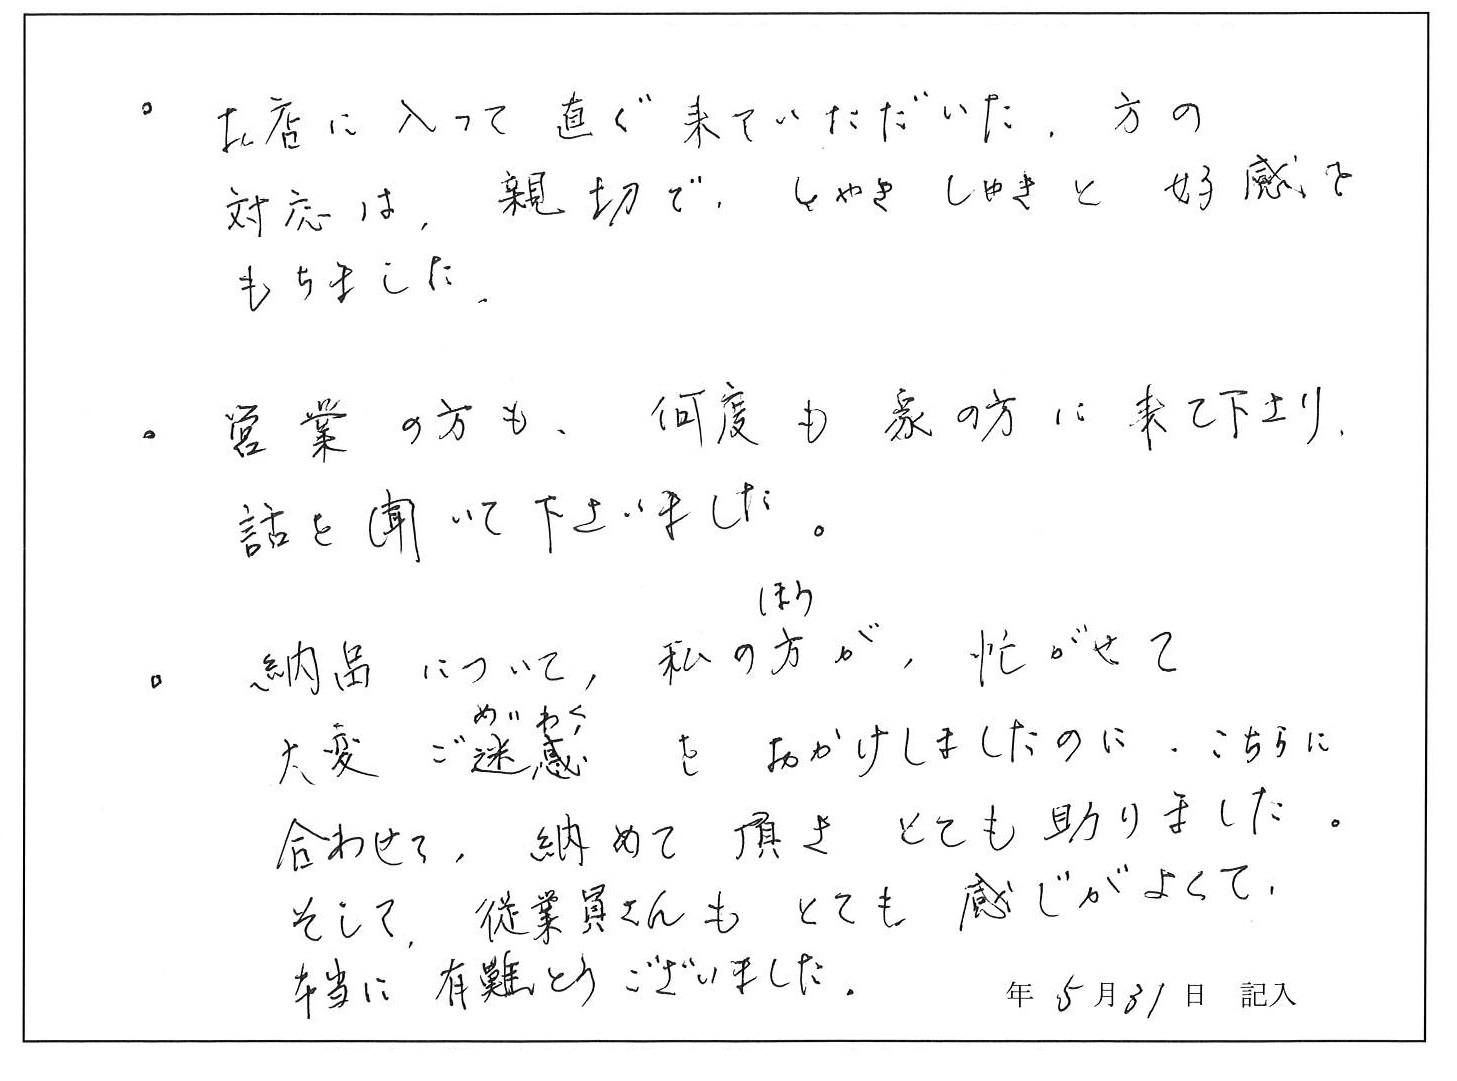 。お店に入って直ぐ来ていただいた、方の
対応は、親切で、しゃきしゃきと好感を
もちました、
。営業の方も、何度も家の方に来て下さり、
話を聞いて下さいました。
ほう
。納品について、私の方が、忙がせて
めいわく
大変ご迷惑をおかけしましたのに、こちらに
合わせて、納めて頂きとても助りました。
そして、従業員さんもとても感じがよくて、
本当に有難とうございました。
年 5月31日 記入